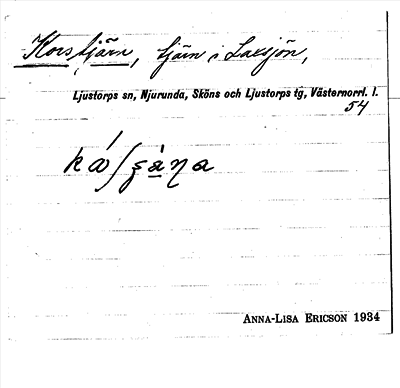 Korstjärn, tjärn i Laxsjön,
Ljustorps sn, Njurunda, Sköns och Ljustorps tg, Västernorrl. l.
54
Anna-Lisa Ericson 1934